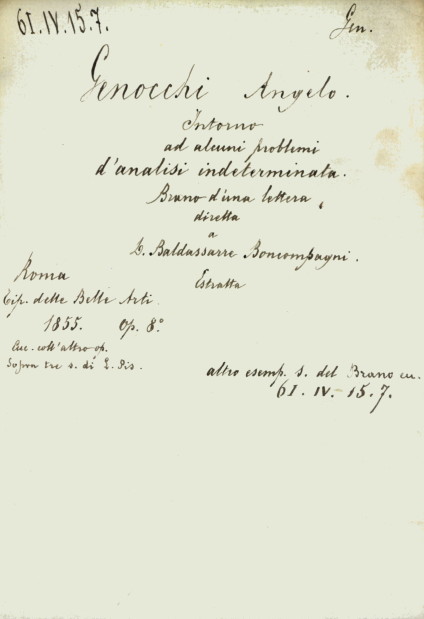 61.IV.15.7.
Gen.
Genocchi Angelo.
Intorno
ad alcuni problemi
d'analisi indeterminata.
Brano d'una lettera
diretta
a
D. Baldassarre Boncompagni.
Estratta
Roma
Tip. delle Belle Arti
1855. Op. 8°
coll'altro op.
Sopra tre s. di L. Pis.
altro esemp. s. del Brano
61. IV.- 15.7.